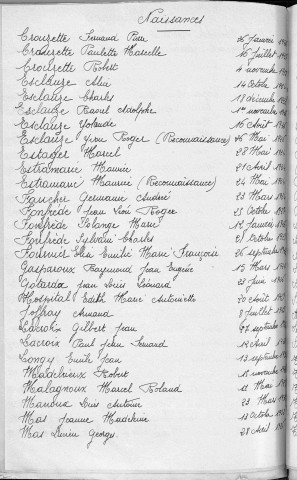 Naissances
Crouzette Fernand Pierre 26 Janvier
Crouzette Paulette Marcelle 16 Juillet
Crouzette Robert 4 novembre
Esclauze 14 Octobre
Esclauze Charles 18 décembre
Esclauze Raoul Adolphe 1er novembre
Esclauze Yolande 16 Août
Esclauze Roger (Reconnaissance) 26 Mai
Estager Marcel 28 Mai
Estramaire Maurice 21 Avril
Estramaire Maurice (Reconnaissance) 24 Mai
Faucher Germaine Andrée 23 Mars
Fonfrède Jean Roger 25 Octobre
Fonfrède Solange Marie 12 Janvier
Fonfrède Sylvain Charles 21 Octobre
Fournier Emilie Marie Françoise 26 septembre
Gasparoux Raymond Jean Eugène 15 Mars
Golardo Jean Louis Léonard 23 Juin
Hospital Edith Marie Antoinette 20 Août
Joffray Armand 8 Juillet
Lacroix Gilbert Jean 27 septembre
Lacroix Paul Jean Fernand 12 Avril
Longy Emile Jean 13 septembre
Madebrieux Robert 18 novembre
Malagnoux Marcel Roland 11 Mai
Manoux Louis Antoine 23 Mars
Mas Jeanne Madeleine 13 Octobre
Mas Lucien Georges 28 Avril